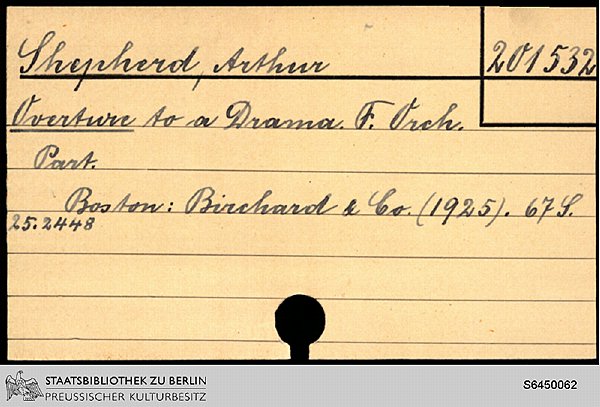 Shepherd, Arthur
201532
Overture to a Drama. F. Orch.
Part.
Boston: Birchard & Co. (1925). 67 S.
25.2448
STAATSBIBLIOTHEK ZU BERLIN
PREUSSISCHER KULTURBESITZ
S6450062